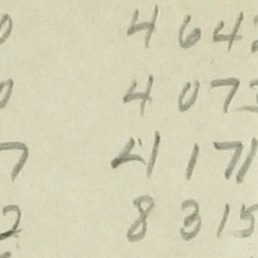 0 4 64
0 4 073
7 4 171
2 8 315